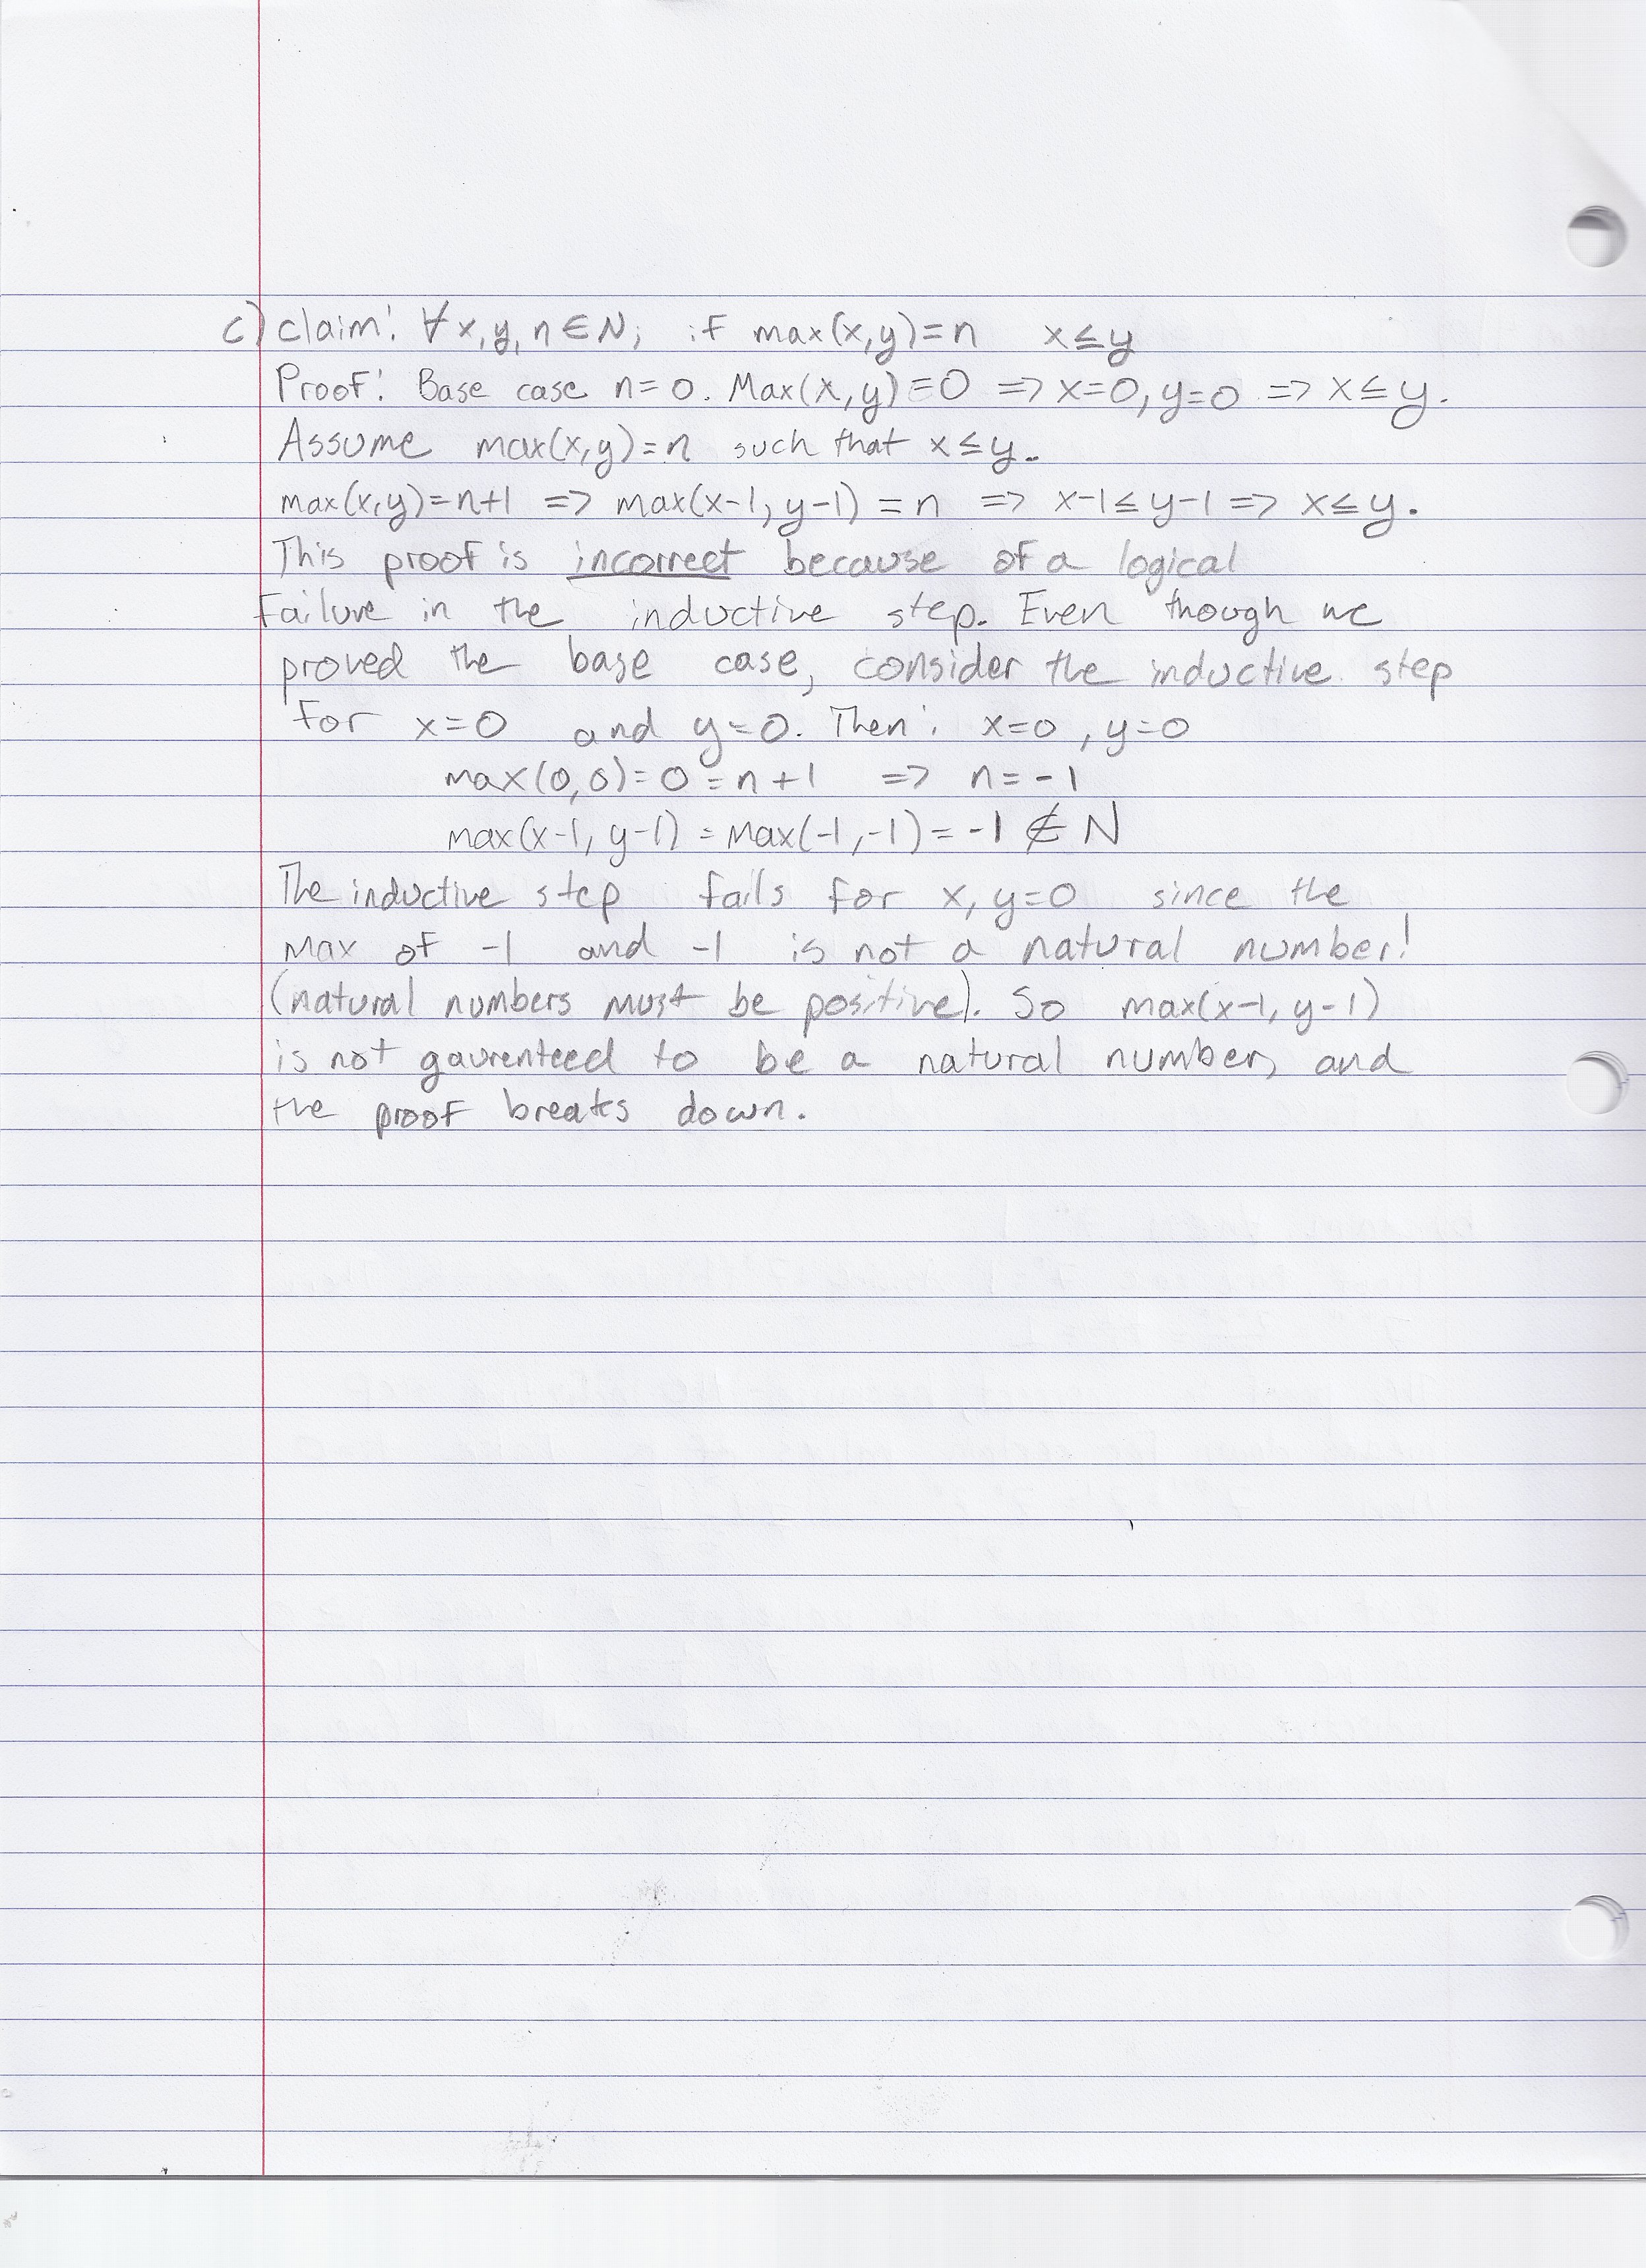 c) claim: ∀x,y,n∈N; if max(x,y)=n x≤y
Proof: Base case n=0. Max(x,y)=0 => x=0,y=0 => x≤y.
Assume max(x,y)=n such that x≤y.
max(x,y)=n+1 => max(x-1, y-1) = n => x-1≤y-1 => x≤y.
This proof is incorrect because of a logical
Failure in the inductive step. Even though we
proved the base case, consider the inductive step
for x=0 and y=0. Then: x=0, y=0
max(0,0)=0=n+1 => n=-1
max(x-1, y-1) = Max(-1,-1)=-1 ∉ N
The inductive step fails for x, y=0 since the
Max of -1 and -1 is not a natural number!
(natural numbers must be positive). So max(x-1, y-1)
is not gaurenteed to be a natural number, and
the proof breaks down.